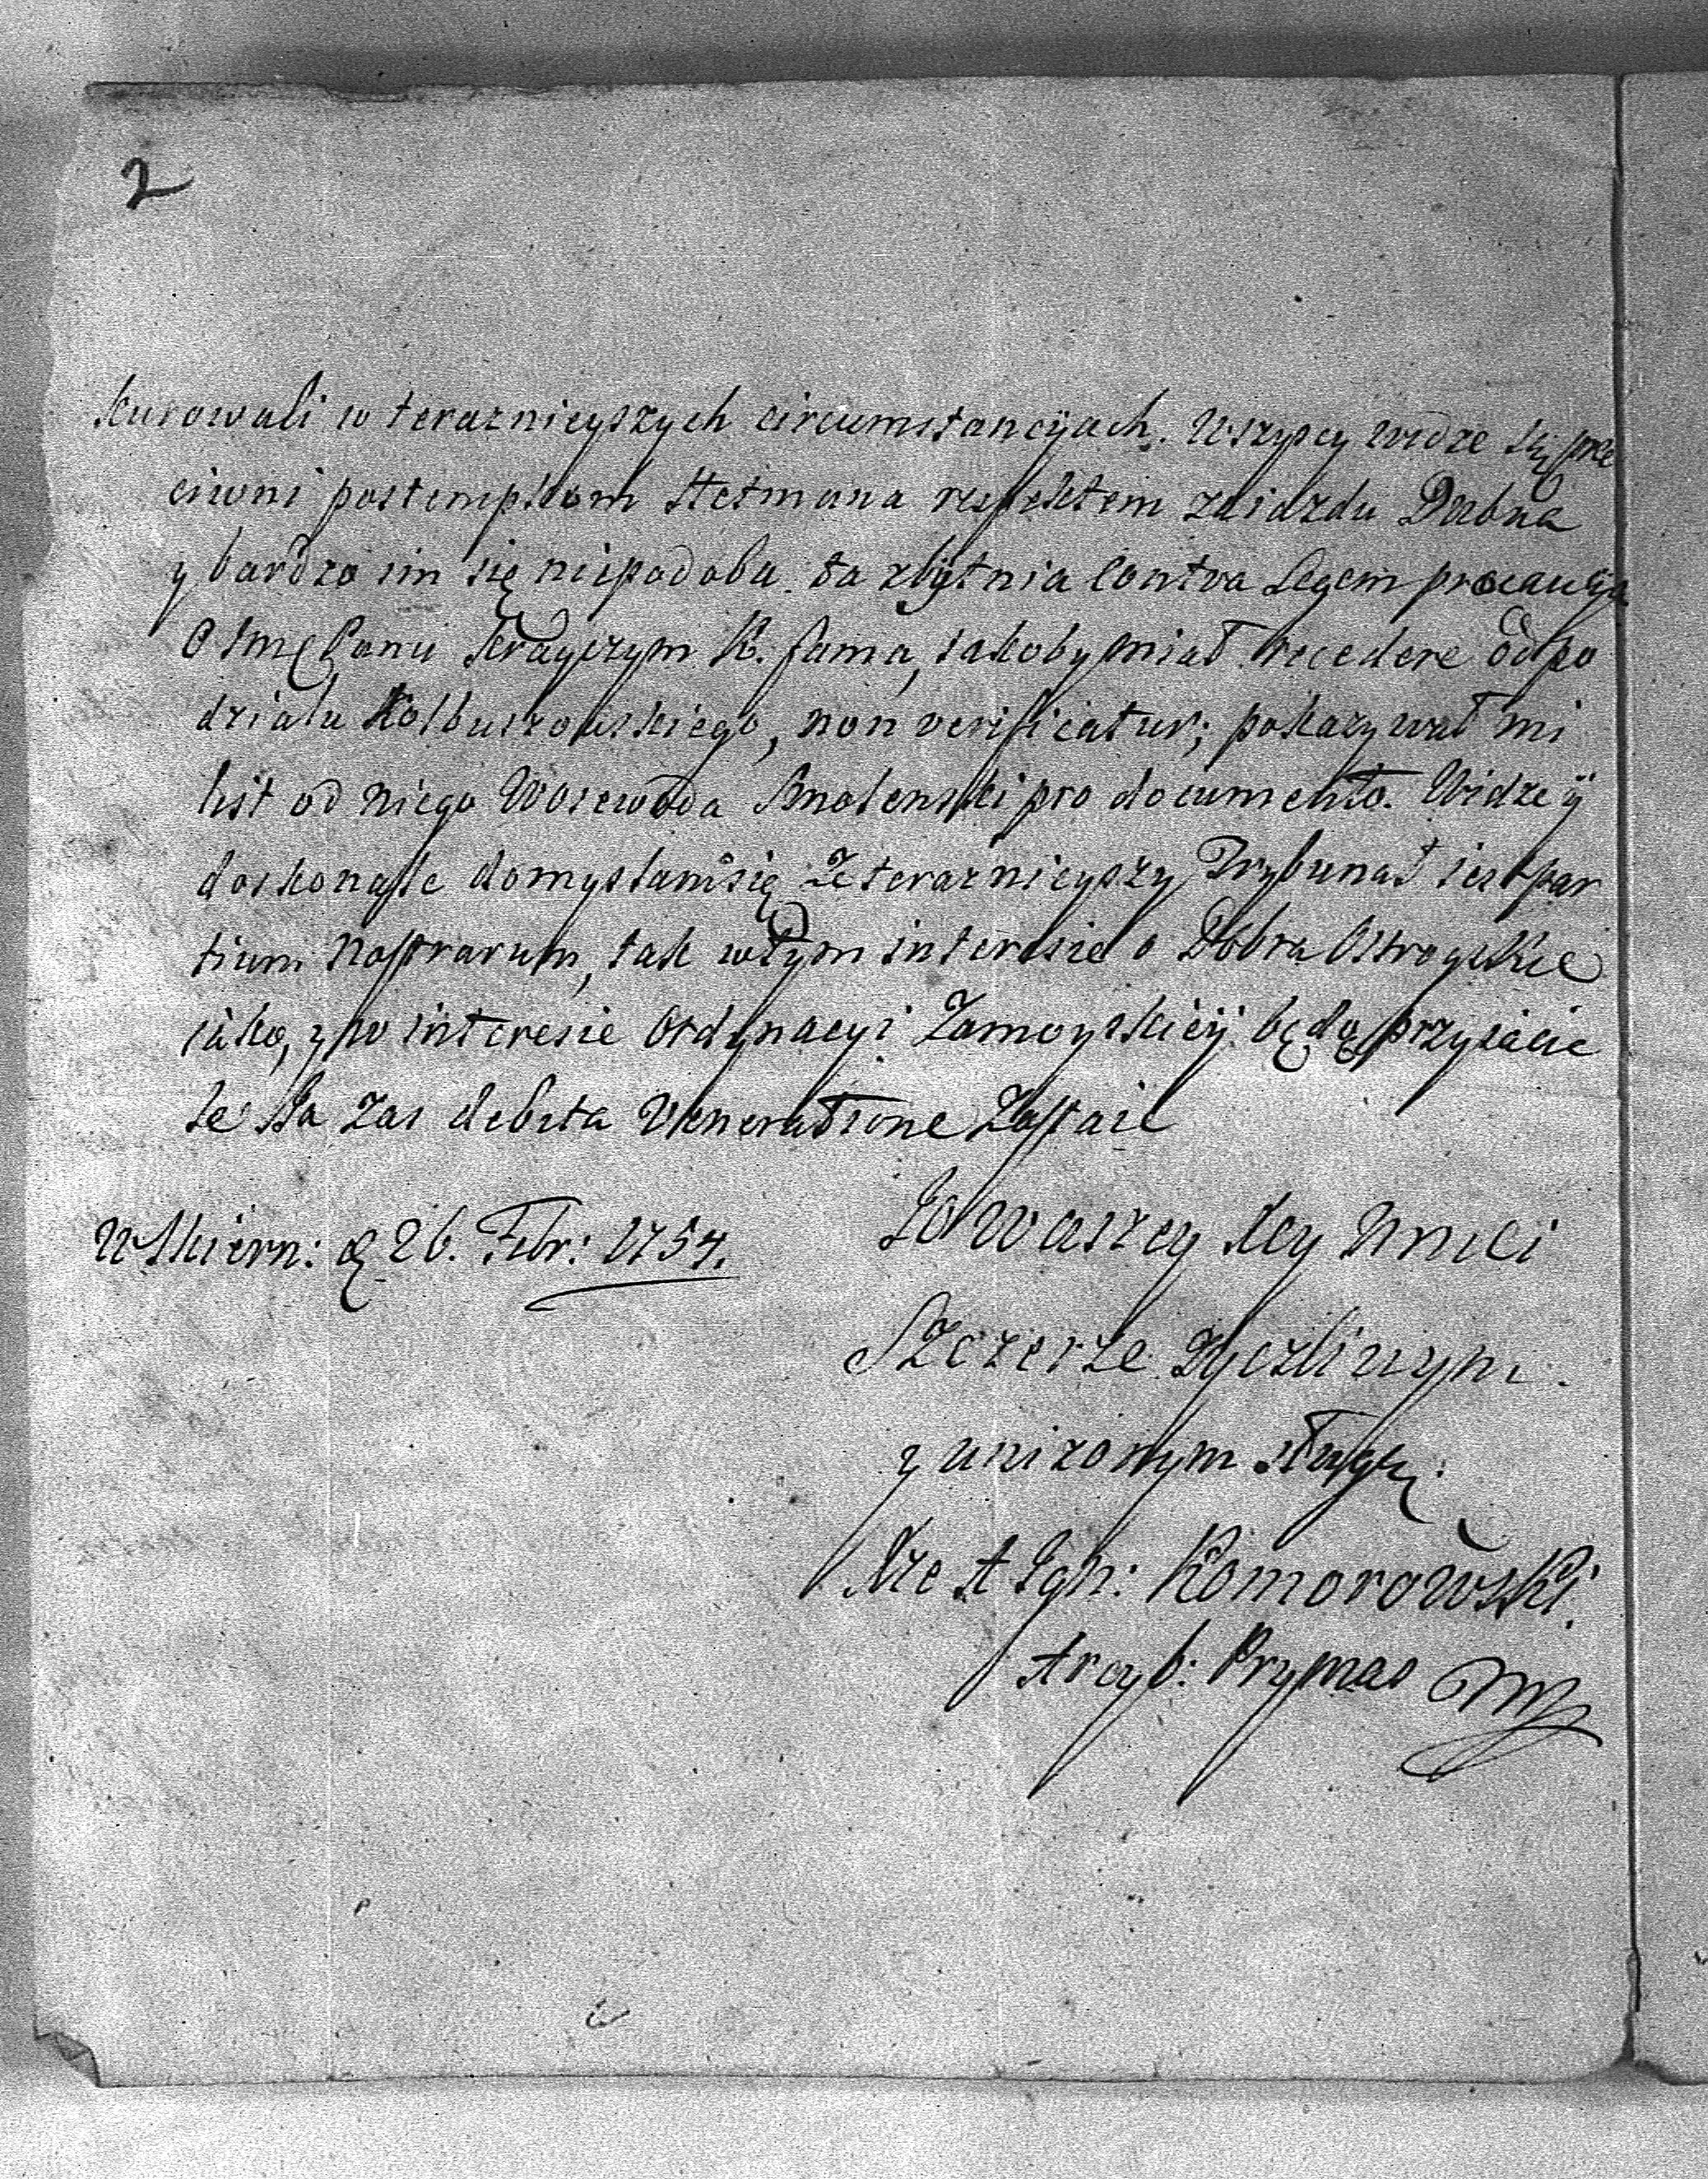 2
kurowali w teraznieyszych circumstancyach. Wszyscy widze są prze
ciwni postempkom Hetmana respektem zaiazdu Dubna
y bardzo im się niepodoba ta zbytnia contra Legem
O Jmę Panu Krayczym K. fama, iakoby miał recedere od po
działu Kolbuszowskiego, non verificatur; pokazywał mi
list od niego Woiewoda Smolenski pro documento. Widze ÿ
doskonale domyslam się że teraznieyszy Trybunał iest par
tium nostrarum, tak w tym interesie o Dobra Ostrogskie
iako, y w interesie Ordynacyi Zamoyskieÿ będą przyiacie
le Ja zas debita Veneratione Zostaie
W Skiern: d 26. Febr: 1754.
Jo Waszey Xcy Mmci
Szczerze Zyczliwym.
y unizonym sługą.
Xże A Ign: Komorowski.
Arcyb: Prymas mp